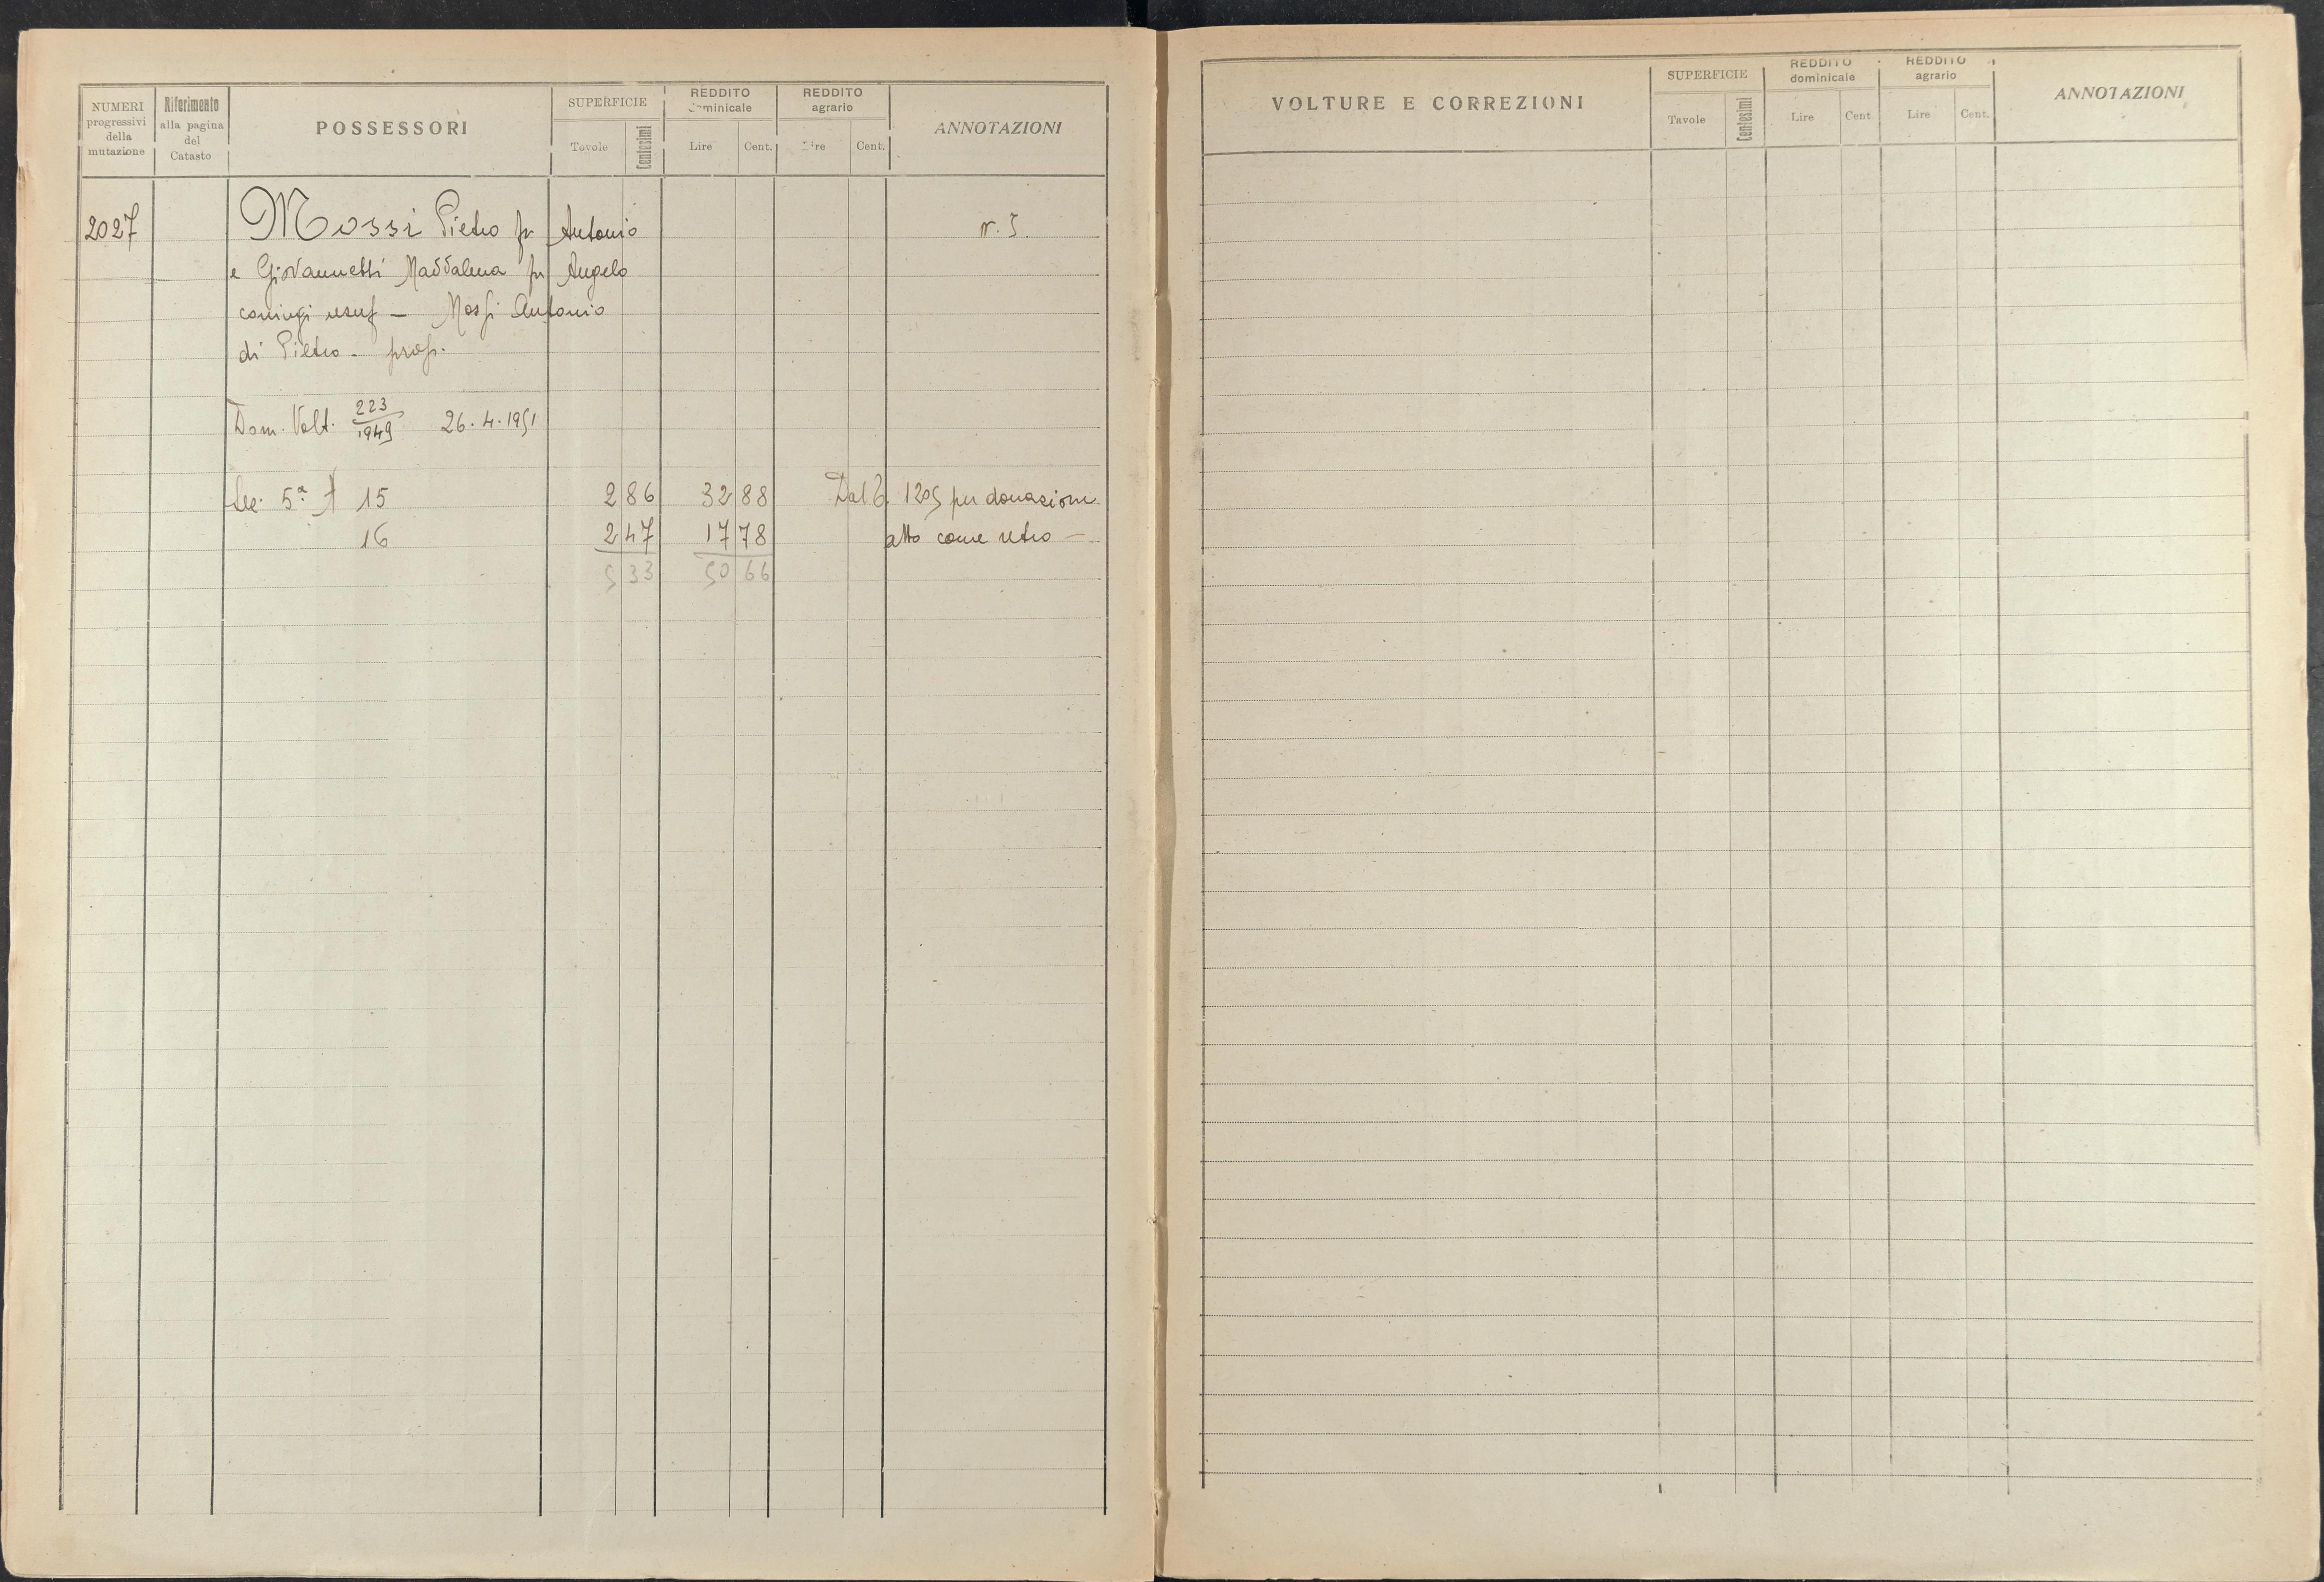 NUMERI progressivi della mutazione
Riferimento alla pagina del Catasto
POSSESSORI
SUPERFICIE
Tavole
Centesimi
REDDITO dominicale
Lire
Cent.
REDDITO agrario
Lire
Cent.
ANNOTAZIONI
2027 Mossi Pietro fu Antonio
e Giovannetti Maddalena fu Angelo
coniugi usuf – Mossi Antonio
di Pietro – prop.
Dom. Volt. 223/1949 26.4.1951
Sez. 5ª A 15 2 86 32 88 Dal 1205 per donazione
16 2 47 17 78 atto come retro –
5 33 50 66
VOLTURE E CORREZIONI
SUPERFICIE
Tavole
Centesimi
REDDITO dominicale
Lire
Cent
REDDITO agrario
Lire
Cent.
ANNOTAZIONI